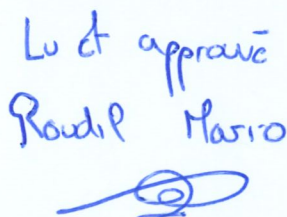 Lu et approuvé
Roudil Mario